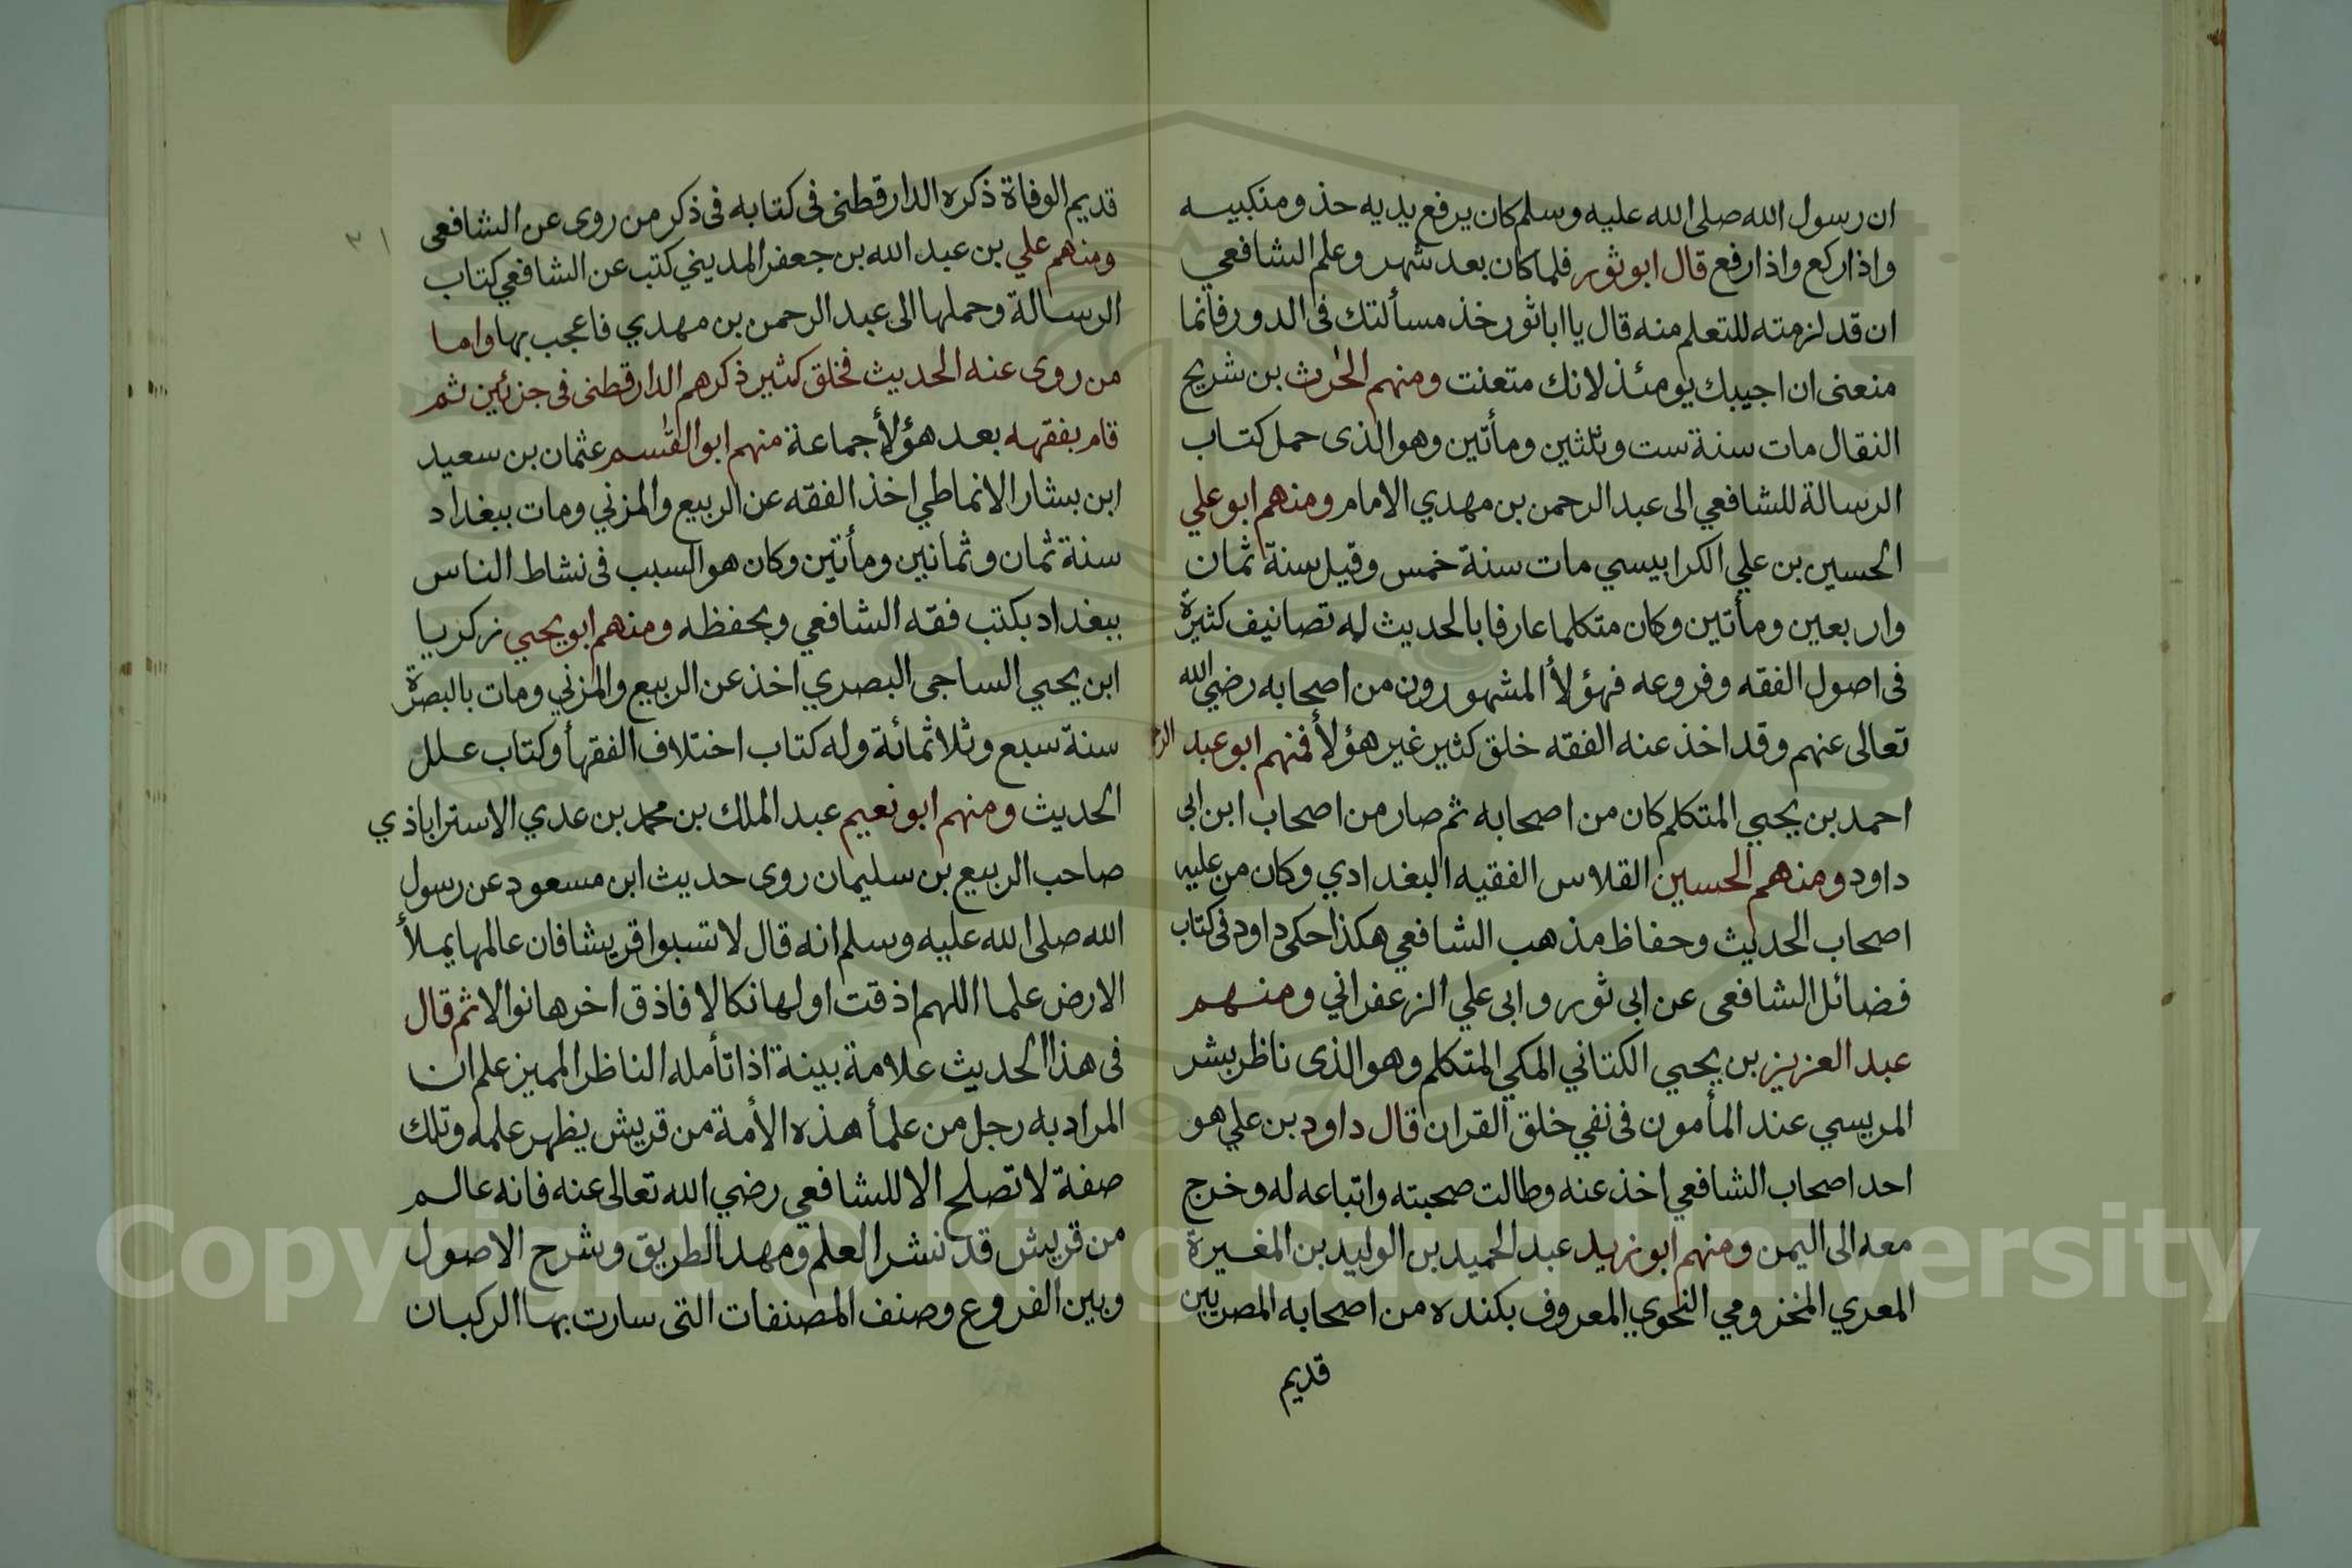 ان رسول الله صلى الله عليه وسلم كان يرفع يديه حذ ومنكبيه
واذا ركع واذا رفع قال ابو ثور فلما كان بعد شهر وعلم الشافعي
ان قد لزمته للتعلم منه قال يا ابا ثور خذ مسألتك فى الدور فانما
منعنى ان اجيبك يومئذ لانك متعنت ومنهم الحرث بن شريح
النقال مات سنة ست وثلثين ومأتين وهو الذى حمل كتاب
الرسالة للشافعي الى عبد الرحمن بن مهدي الامام ومنهم ابو علي
الحسين بن علي الكرابيسي مات سنة خمس وقيل سنة ثمان
واربعين ومأتين وكان متكلما عارفا بالحديث له تصانيف كثيرة
فى اصول الفقه وفروعه فهؤلأ المشهورون من اصحابه رضي الله
تعالى عنهم وقد اخذ عنه الفقه خلق كثير غير هؤلأ فمنهم ابو عبد
احمد بن يحيي المتكلم كان من اصحابه ثم صار من اصحاب ابن ابى
داود ومنهم الحسين القلاس الفقيه البغدادي وكان من علية
اصحاب الحديث وحفاظ مذهب الشافعي هكذا حكى داود فى كتاب
فضائل الشافعى عن ابى ثور وابى علي الزعفراني ومنهم
عبد العزيز بن يحيي الكتاني المكي المتكلم وهو الذى ناظر بشر
المريسي عند المأمون فى نفي خلق القران قال داود بن علي هو
احد اصحاب الشافعي اخذ عنه وطالت صحبته واتباعه له وخرج
معه الى اليمن ومنهم ابو زيد عبد الحميد بن الوليد بن المغيرة
المعري المخزومي النحوي المعروف بكنده من اصحابه المصريين
قديم
٢١
قديم الوفاة ذكره الدارقطنى فى كتابه فى ذكر من روى عن الشافعى
ومنهم علي بن عبد الله بن جعفر المديني كتب عن الشافعي كتاب
الرسالة وحملها الى عبد الرحمن بن مهدي فاعجب بها واما
من روى عنه الحديث فخلق كثير ذكرهم الدارقطنى فى جزئين ثم
قام بفقهه بعد هؤلأ جماعة منهم ابو القسم عثمان بن سعيد
ابن بشار الانماطي اخذ الفقه عن الربيع والمزني ومات ببغداد
سنة ثمان وثمانين ومأتين وكان هو السبب فى نشاط الناس
ببغداد بكتب فقه الشافعي وبحفظه ومنهم ابو يحيي زكريا
ابن يحيي الساجى البصري اخذ عن الربيع والمزني ومات بالبصرة
سنة سبع وثلاثمائة وله كتاب اختلاف الفقهأ وكتاب علل
الحديث ومنهم ابو نعيم عبد الملك بن محمد بن عدي الاستراباذي
صاحب الربيع بن سليمان روى حديث ابن مسعود عن رسول
الله صلى الله عليه وسلم انه قال لا تسبوا قريشا فان عالمها يملأ
الارض علما اللهم اذقت اولها نكالا فاذق اخرها نوالا ثم قال
فى هذا الحديث علامة بينة اذا تأمله الناظر المميز علم ان
المراد به رجل من علمأ هذه الأمة من قريش يظهر علمه وتلك
صفة لا تصلح الا للشافعي رضي الله تعالى عنه فانه عالم
من قريش قد نشر العلم ومهد الطريق وشرح الاصول
وبين الفروع وصنف المصنفات التى سارت بها الركبان
Copyright © King Saud University
1957